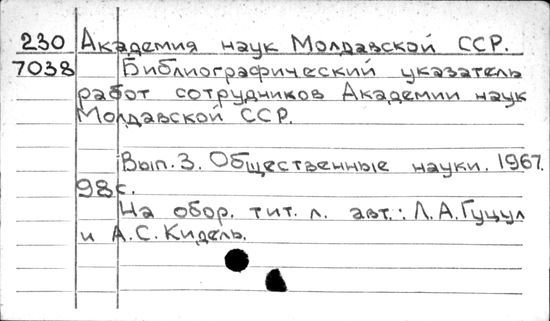 230 Академия наук Молдавской ССР.
7038 Библиографический указатель
работ сотрудников Академии наук
Молдавской ССР.
Вып.3. Общественные науки. 1967.
98 с.
На обор. тит. л. авт.: Л.А.Гуцул
и А.С.Кидель.